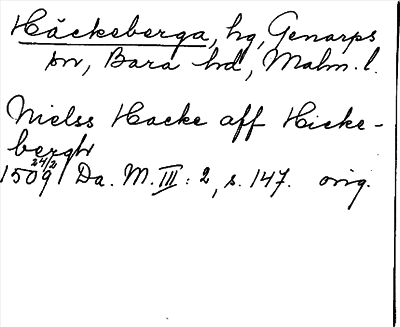 Häckeberga, hg, Genarps
sn, Bara hd, Malm. l.
Nielss Hacke aff Hicke-
bergh
1509 24/2 Da. M. III: 2, s. 147. orig.